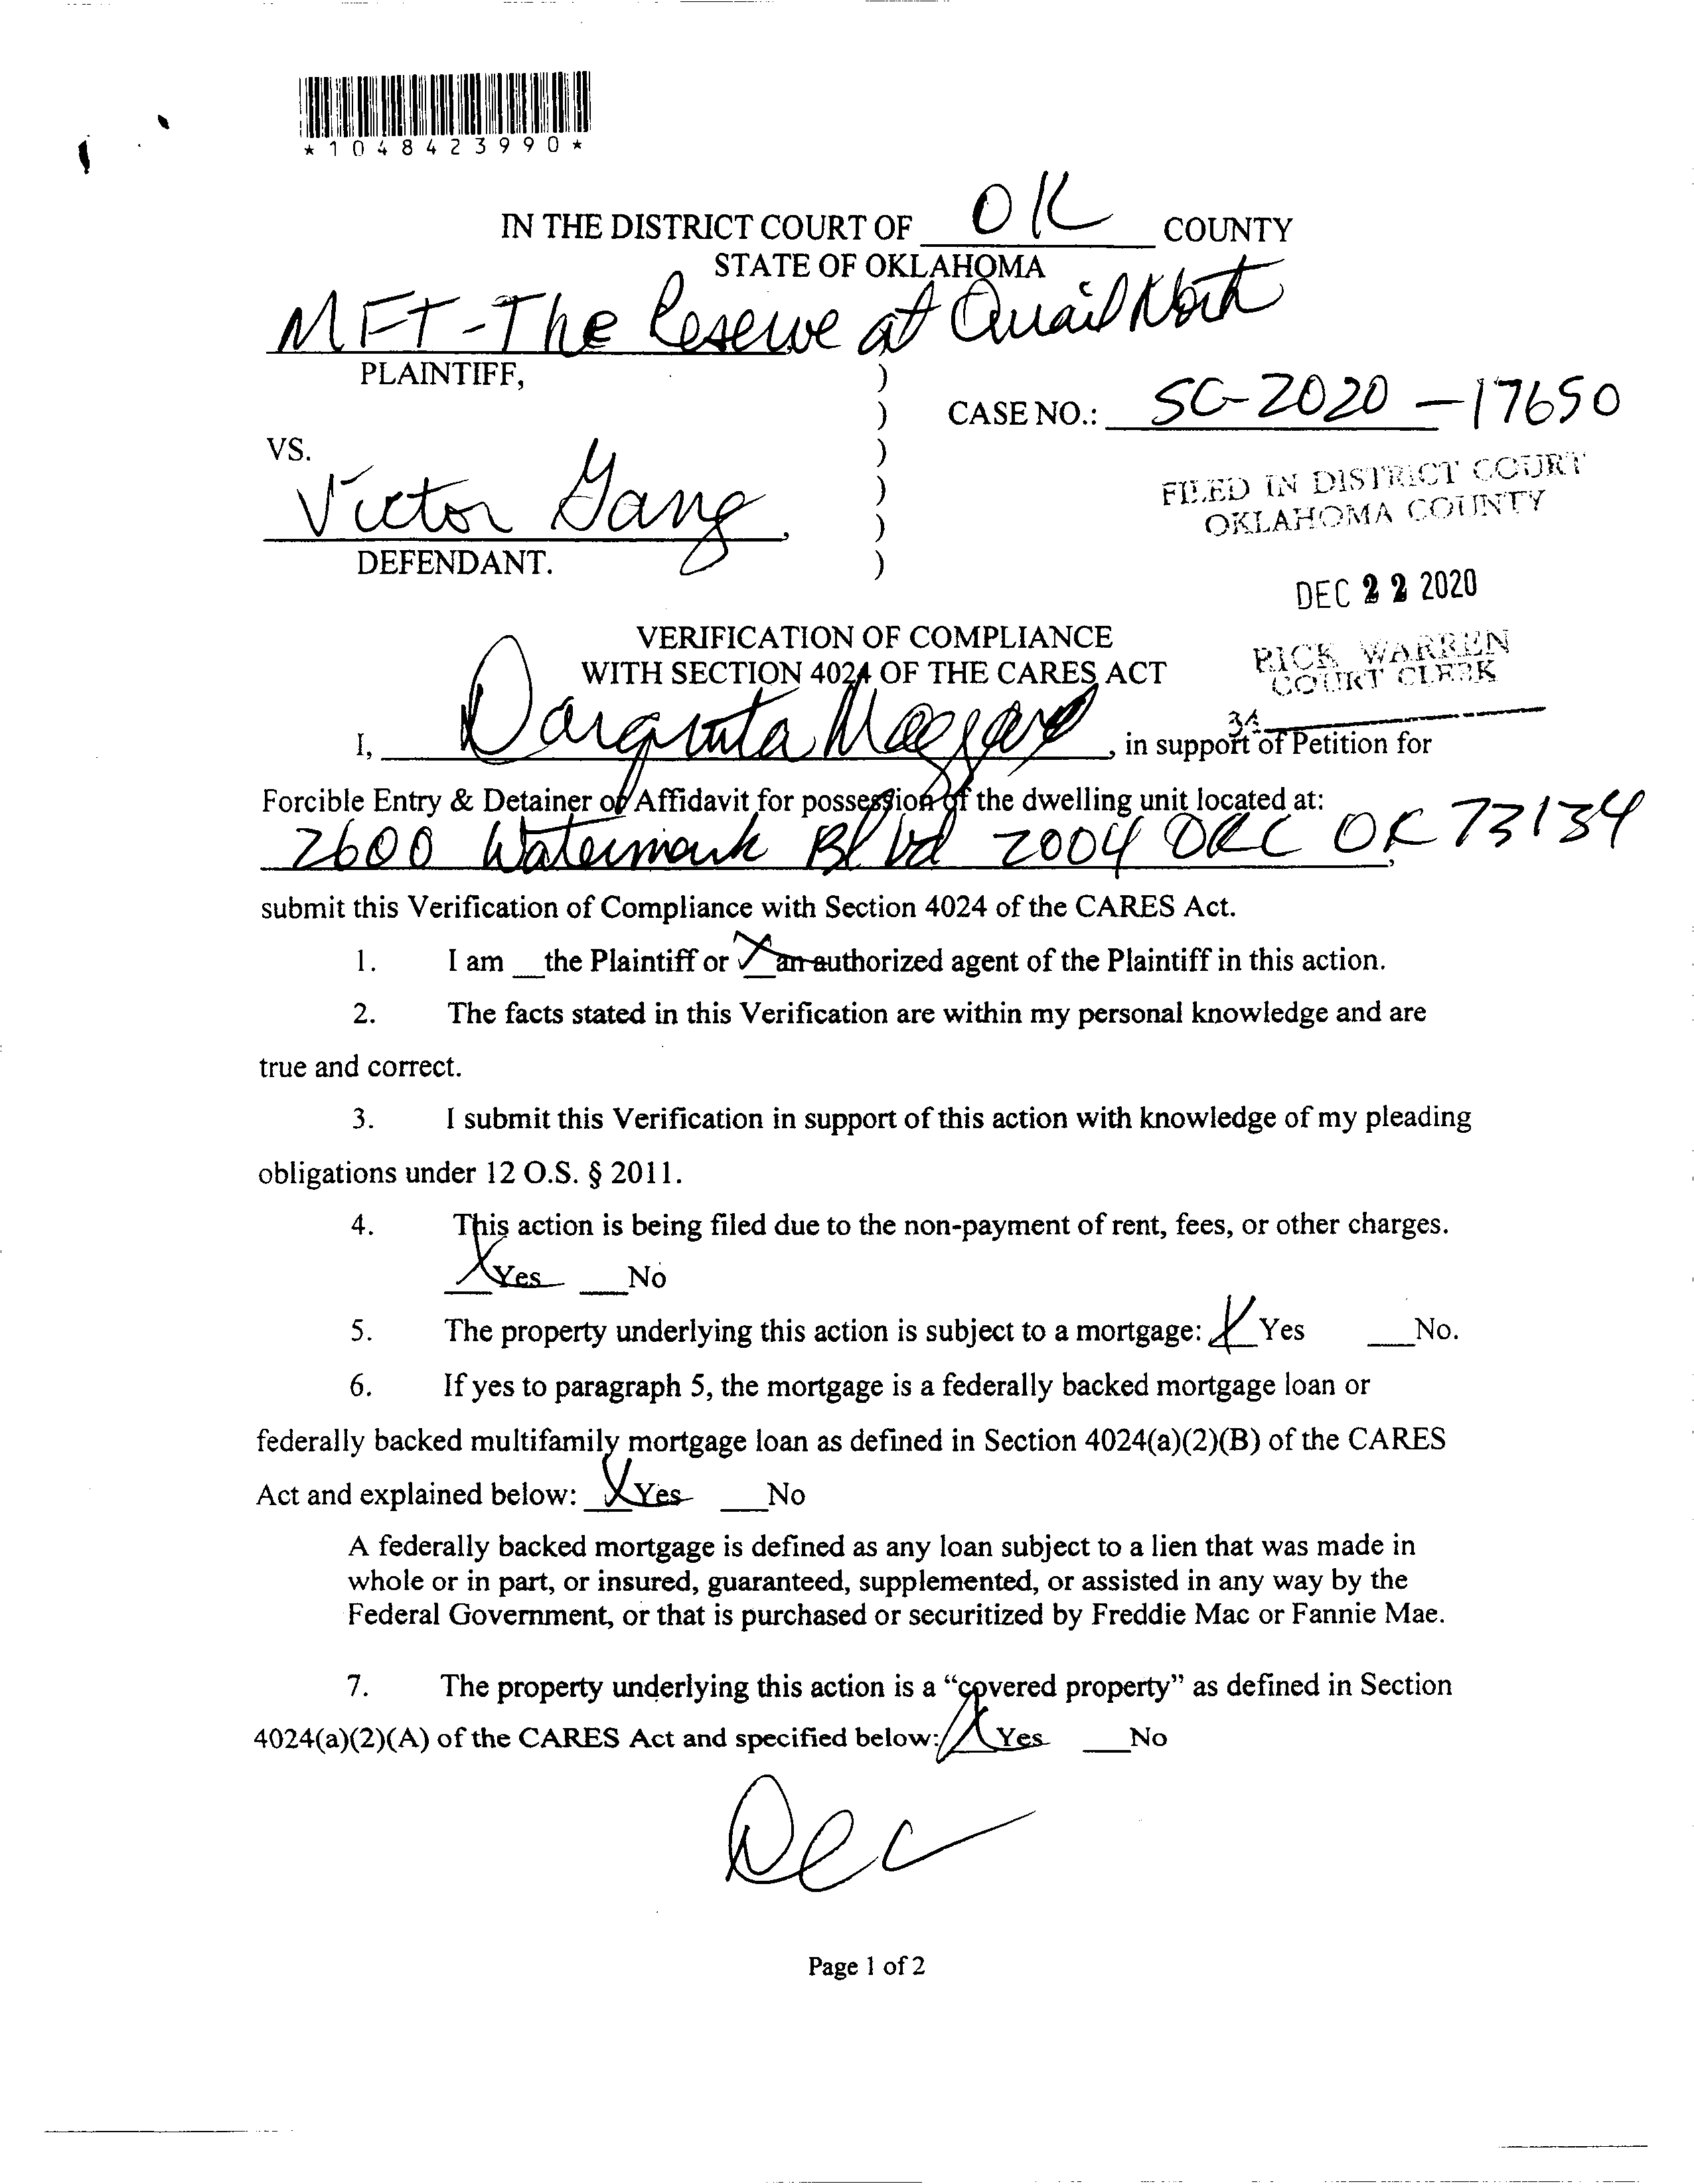 *1048423990*
IN THE DISTRICT COURT OF OK COUNTY
STATE OF OKLAHOMA
MFT-The Reserve at Quail North
PLAINTIFF, )
) CASE NO.: SC-2020-17650
VS. )
Victor Gang, )
)
DEFENDANT. )
FILED IN DISTRICT COURT
OKLAHOMA COUNTY
DEC 22 2020
RICK WARREN
COURT CLERK
34
VERIFICATION OF COMPLIANCE
WITH SECTION 4024 OF THE CARES ACT
I, , in support of Petition for
Forcible Entry & Detainer or Affidavit for possession of the dwelling unit located at:
2600 Watermark Blvd 2004 OKC OK 73134,
submit this Verification of Compliance with Section 4024 of the CARES Act.
1. I am __the Plaintiff or X an authorized agent of the Plaintiff in this action.
2. The facts stated in this Verification are within my personal knowledge and are
true and correct.
3. I submit this Verification in support of this action with knowledge of my pleading
obligations under 12 O.S. § 2011.
4. This action is being filed due to the non-payment of rent, fees, or other charges.
X Yes ___No
5. The property underlying this action is subject to a mortgage: X Yes ___No.
6. If yes to paragraph 5, the mortgage is a federally backed mortgage loan or
federally backed multifamily mortgage loan as defined in Section 4024(a)(2)(B) of the CARES
Act and explained below: X Yes ___No
A federally backed mortgage is defined as any loan subject to a lien that was made in
whole or in part, or insured, guaranteed, supplemented, or assisted in any way by the
Federal Government, or that is purchased or securitized by Freddie Mac or Fannie Mae.
7. The property underlying this action is a “covered property” as defined in Section
4024(a)(2)(A) of the CARES Act and specified below: X Yes ___No
Page 1 of 2